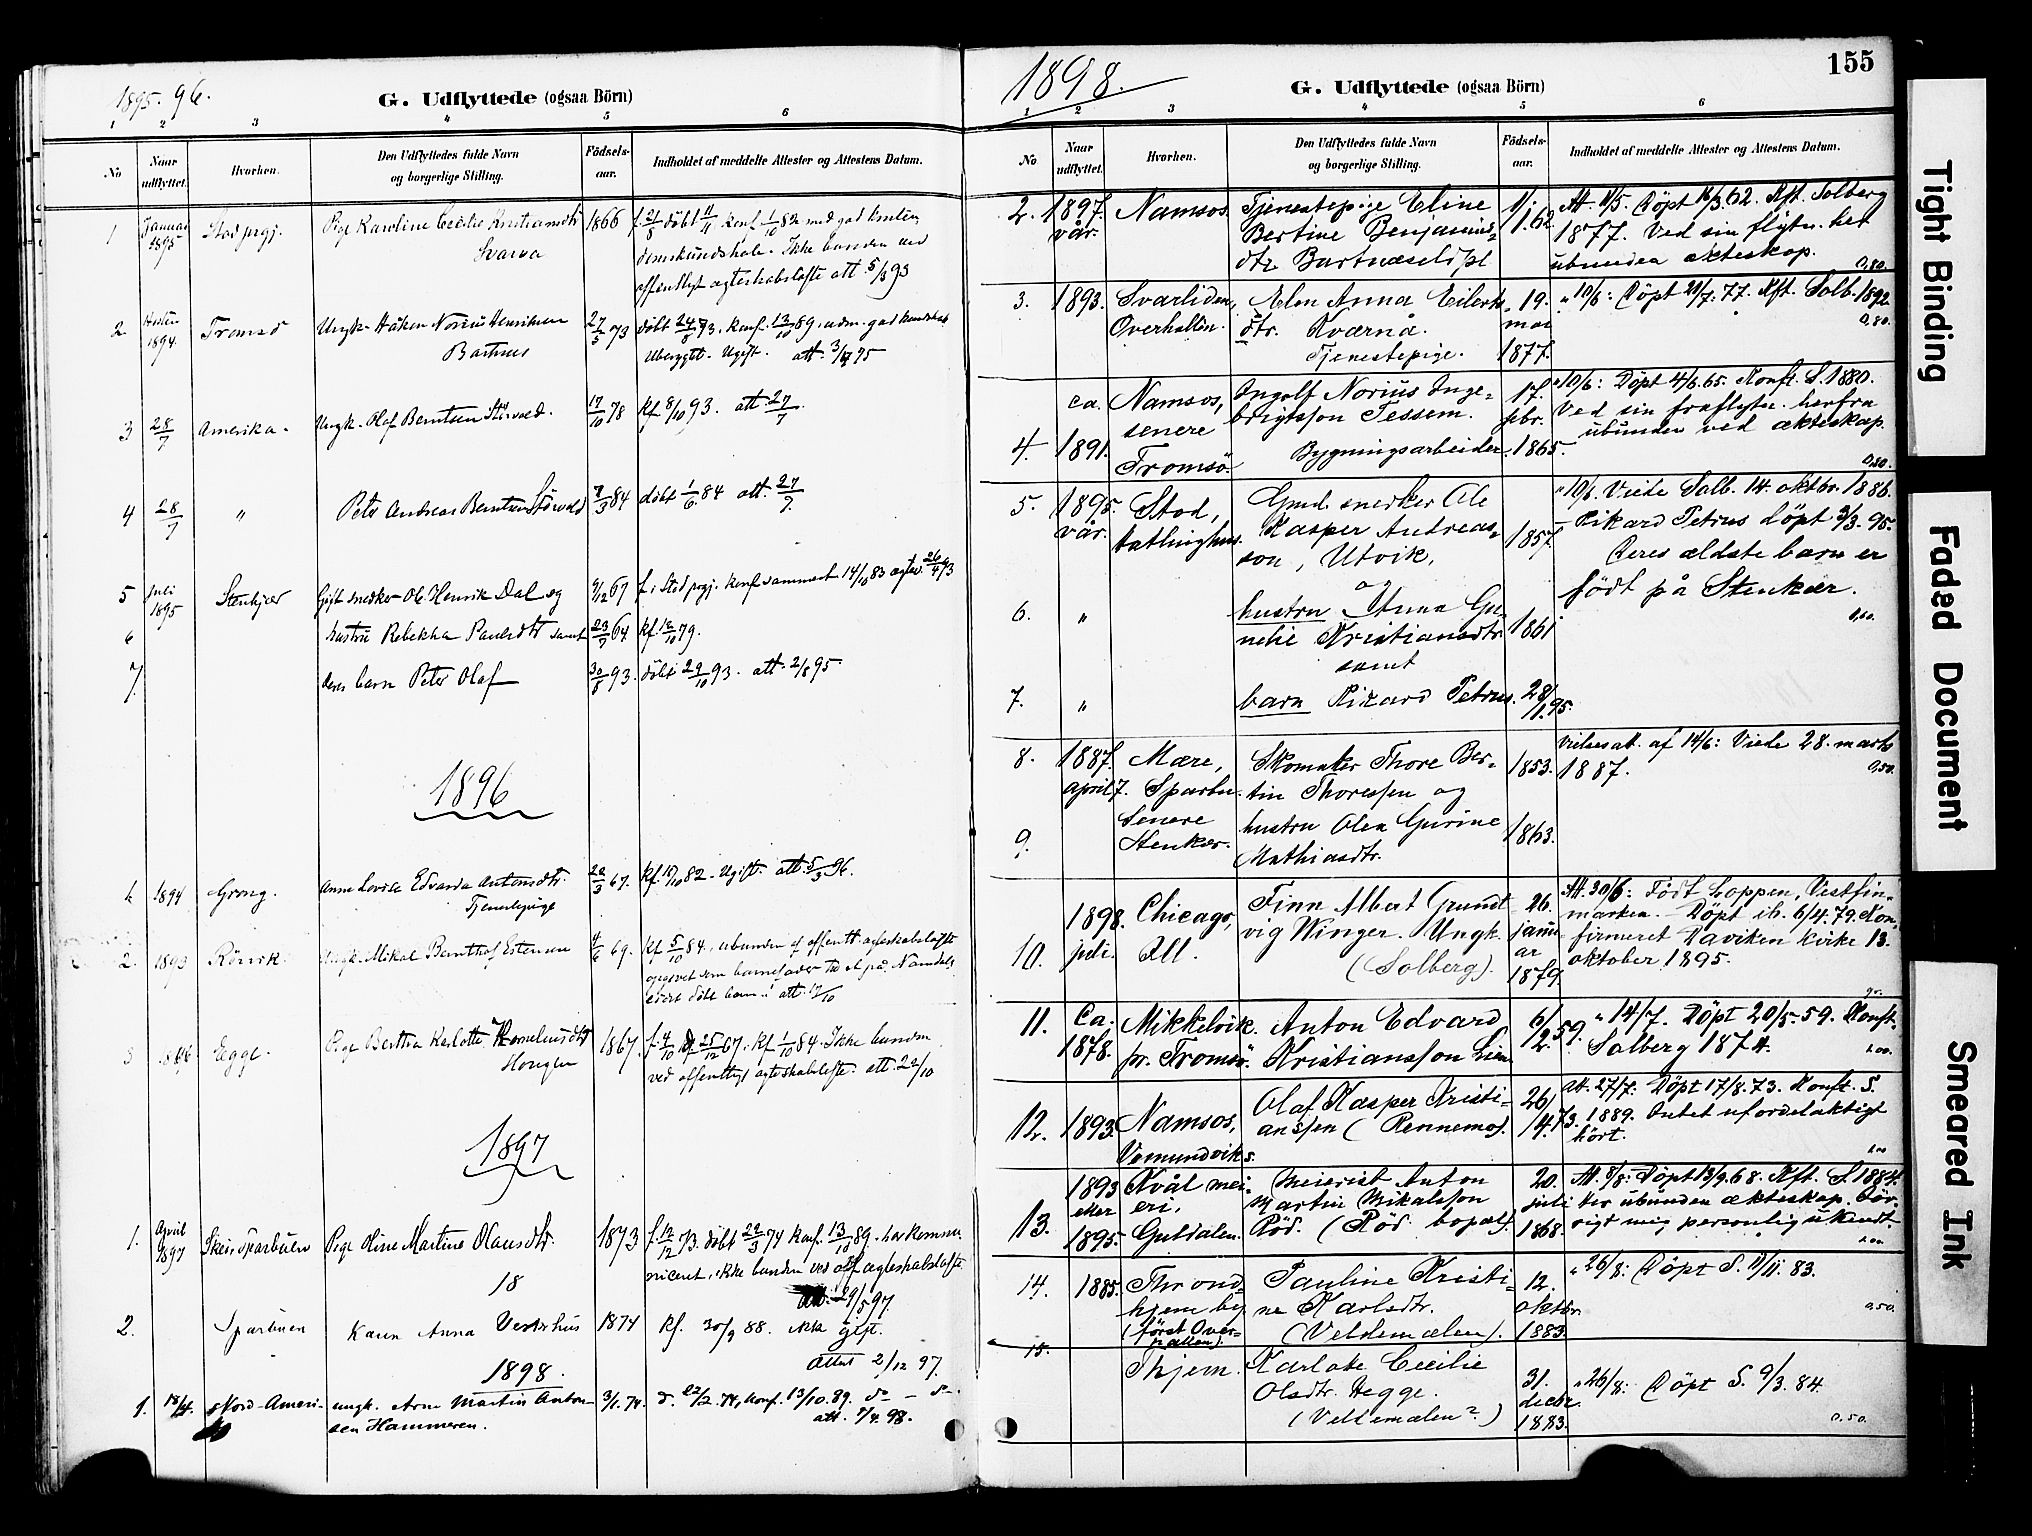 1895. 96.
G. Udflyttede (ogsaa Börn)
1 2 3 4 5 6
No
Naar udflyttet.
Hvorhen.
Den Udflyttedes fulde Navn og borgerlige Stilling.
Födsels-aar.
Indholdet af meddelte Attester og Attestens Datum.
1 Januar 1895 Stod prgj. Pige Karoline Cecilie Kristiansdtr 1866 döbt konf. 1/10 82 med god kristen
Svarva domskundskab. Ikke bunden ved
offentligt ægteskabsløfte att. 5/3 93
2 Hösten 1894 Tromsö Ungk. Håkon Norius Henriksen 27/5 73 döbt 24/8 73, konf. 13/10 89. udm. god kundskab
Bartnes Uberygtet. Ugift. att. 95
3 28/7 Amerika. Ungk. Olaf Berntsen Störvold. 17/10 78 kf 8/10 93. att 27/7.
4 28/7 " Peter Andreas Berntsen Störvold 7/3 84 döbt 1/6. 84 att. 27/7.
5 Juli 1895 Stenkjær Gift snedker Ole Henrik Dal og 9/12 67 f. i Stod prgj. konf sammest. 14/10 83 ægtev. 26/4 93
6 hustru Rebekka Paulsdtr samt 23/7 64 kf. 12/10 79.
7. deres barn Peter Olaf 30/8 93. döbt 29/10 93. att. 2/8 95.
1896
1 1894 Grong. Anne Lovise Edvarda Antonsdtr. 22/3 67. kf. 15/10 82. Ugift. att. 5/3 96.
Tjenestepige
2. 1893 Rörvik. Ungk. Mikal Bernthof Estensen 4/6 69. kf 5/10 84. ubunden af offentl. ægteskabsløfte
opgivet som barnefader til et på Namdals
eidet döbt barn. att. 17/10
3 1896 Egge. Pige Berttra Karlotte Kornelinsdtr 1867. f. 4/10 25/12 67. kf. 1/10 84. Ikke bunden
Hongler ved offentligt ægteskabsløfte. att. 22/10
1897
1. April 1897 Skei i Sparbuen Pige Oline Martine Olausdtr. 1873 f. 12/12 73. döbt 22/3 74 konf. 13/10 89. har kommu
niceret, ikke bunden ved off ægteskabsløfte.
18 Att. 29/5 97.
2. Sparbuen Karen Anna Vesterhus 1874 kf. 30/9 88. ikke gift.
Attest 2/12 97.
1898.
1. 18/4. Nord-Ameri- ungk. Arne Martin Anton- 3/1. 74. d. 22/2. 74, konf. 13/10. 89. do — do.
sen Hammeren. att. 7/4. 98.
1898.
155
G. Udflyttede (ogsaa Börn)
1 2 3 4 5 6
No
Naar udflyttet.
Hvorhen.
Den Udflyttedes fulde Navn og borgerlige Stilling.
Födsels-aar.
Indholdet af meddelte Attester og Attestens Datum.
2. 1897. Namsos. Tjenestepige Eline 11/ Att. 11/5. Döpt 16/3 62. Kft. Solberg
vår. Bertine Benjamins- 1.62. 1877. Ved sin flytn. her
dtr Bartnæseidpl ubunden ekteskap.
0,80.
3. 1893. Svarliden, Elen Anna Eilerts- 19. " 10/6: Döpt 21/7. 77. Kft. Solb. 1892.
Overhallen. dtr. Kværnå. mai 0,80.
Tjenestepige. 1877.
ca. Namsos, Ingolf Norius Inge- 17. " 10/6: Döpt 4/6. 65. Konft. S. 1880.
senere brigtsson Tessem. febr. Ved sin fraflytn. herfra
4. 1891. Tromsö. Bygningsarbeider. 1865. ubunden ved ekteskap.
0,80.
5. 1895. Stod, Gmd. snerker Ole " 10/6. Viede Solb. 14. oktbr. 1886.
vår. Kasper Andreas- 1857. Rikard Petrus döpt 3/3. 95.
son, Utvik, Deres ældste barn er
og født på Stenkær.
6. " hustru Anna Gu-
nelie Kristiansdtr 1861
samt
7. " barn Rikard Petrus. 28/1. 95.
8. 1887. Mære, Skomaker Thore Ber- 1853. Vielsesatt. af 14/6: Viede 28. marts
april 7. Sparbu. tin Thoressen og 1887. 0,50.
9. senere hustru Olea Gurine 1863.
Stenkær. Mathiasdtr.
1898. Chicago, Finn Albert Grundt- 26. Att. 30/6: Født Loppen, Vestfin-
10. juli. Ill. vig Winger. Ungk. janu- marken. — Döpt ib. 6/4. 79. Kon-
(Solberg). ar firmeret Daviken kirke 13.
1879. oktober 1895.
gr.
11. Ca. Mikkelvik. Anton Edvard 6/ " 14/7. Döpt 20/5. 59. Konft.
1878. pr. Tromsö. Kristiansson Lien 2. 59. Solberg 1874.
1.00.
12. 1893. Namsos, Olaf Kasper Kristi- 26/ Att. 27/7: Döpt 17/8. 73. Konft. S.
Vemundvik s. anssen (Rennemo). 4. 73. 1889. Intet ufordelaktigt
hört.
1.00
1893 Kvål mei- Meierist Anton 20. Att. 8/8: Döpt 13/9. 68. Kft. S. 1884.
13. eller eri, Martin Mikalsson juli Her ubunden ekteskap. För-
1895. Guldalen. Röd. (Röd bopæl). 1868. rigt mig personlig ukendt
1.00
14. 1885. Thrond- Pauline Kristi- 12. " 26/8: Döpt S. 11/11. 83.
hjem by ne Karlsdtr. oktbr. 0,50.
(först Over- (Veldemælen). 1883.
hallen).
15. Thjem. Karlote Cecilie 31. " 26/8: Döpt S. 9/3. 84.
Olsdtr. Hegge. decbr. 0.50.
(Veldemælen?) 1883.
Tight Binding
Faded Document
Smeared Ink